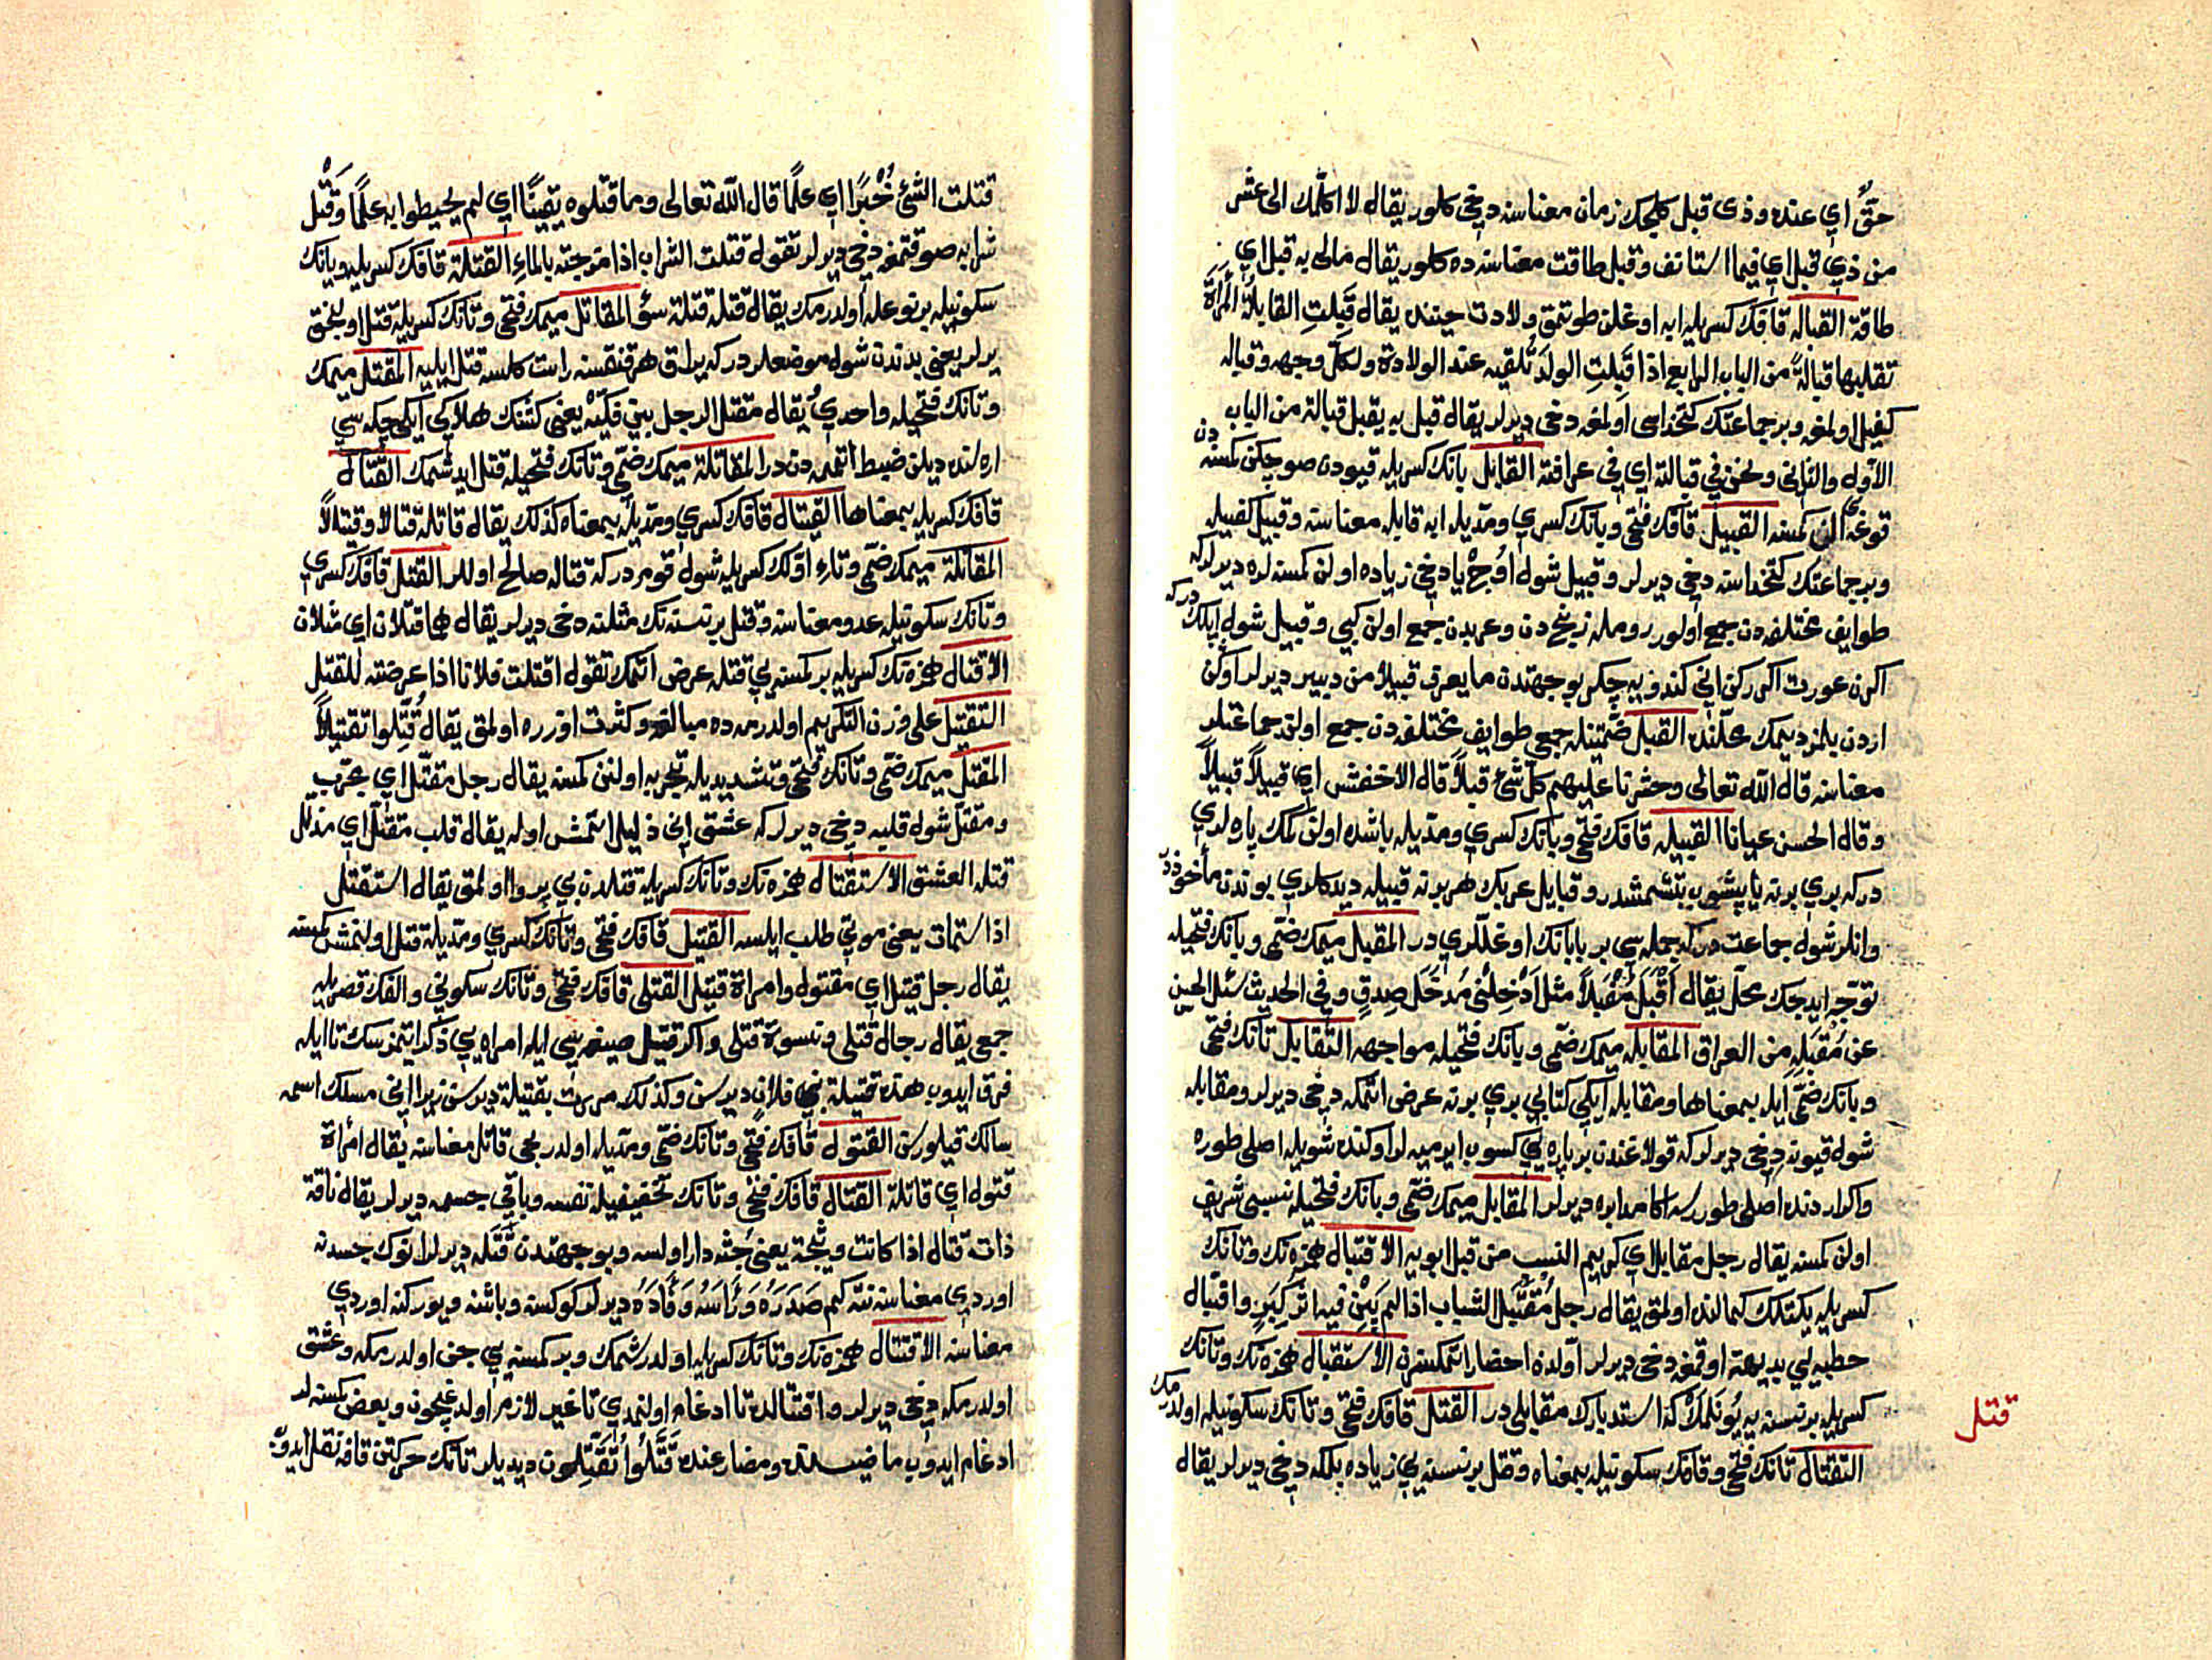 حقٌّ اي عنده وذى قبل كلجك زمان معناسنه دخى كلور يقال لا اكلّمك الى عشر
من ذي قبل اي فيما استانف وقبل طاقت معناسنه ده كلور يقال مالى به قبل اي
طاقة القباله قافك كسريله ابه اوغلن طوتمق ولادت حيننده يقال قَبِلَتِ القابلةُ المرأةَ
تقبلها قبالةً من الباب الرابع اذا قَبِلَتِ الولدَ تُلقيه عند الولادة ولكلّ وجهه وقباله
كفيل اولمغه وبر جماعتك كتخداسى اولمغه دخى ديرلر يقال قبل به يقبل قبالة من الباب
الاول والثانى ونحن في قبالته اي في عرافته القابل بانك كسريله قيودن صو چكن كمسنه دن
قوغه يى الن كمسنه القبيل قافك فتحى وبانك كسري ومدّيله ابه قابله معناسنه وقبيل كفيله
وبر جماعتك كتخداسنه دخى ديرلر وقبيل شول اوچ يا دخى زياده اولن كمسنه لره ديرلر كه
طوايف مختلفه دن جمع اولور روملە زنج دن وعربدن جمع اولن كبي وقبيل شول ايپلكدر كه
اكرن عورت اكرركن انى كندويه چكر بو جهتدن ما يعرف قبيلا من دبير ديرلر اوكن
اردن بلمز ديمك محلّنده القبل ضمّتينله جمعى طوايف مختلفه دن جمع اولن جماعتلر
معناسنه قال الله تعالى وحشرنا عليهم كلّ شئ قبلاً قال الاخفش اي قبيلاً قبيلاً
وقال الحسن عيانا القبيله قافك فتحى وبانك كسري ومدّيله باشده اولن كمك پاره لري
دركه بري برنه ياپيشوب بتشمشدر وقبايل عربك هر برنه قبيله ديدكلري بوندن مأخوذدر
وانلر شول جماعت دركه جمله سي بر بابانك اوغللري در المقبل ميمك ضمّى وبانك فتحيله
توجّه ايدجك محلّ يقال أقْبَلَ مُقْبَلاً مثل أدْخِلْنى مُدْخَلَ صِدقٍ وفي الحديث سئل الحسن
عن مُقْبَلِهِ من العراق المقابله ميمك ضمّى وبانك فتحيله مواجهه التقابل تانك فتحى
وبانك ضمّى ايله بمعناها ومقابله ايكي كتابي بري برنه عرض اتمكه دخى ديرلر ومقابله
شول قيونه دخى ديرلر كه قولاغندن بر پاره يي كسوب ايرميه لر اوكنده شويله اصلى طوره
واكر اردنده اصلى طوررسه اكا مدابره ديرلر المقابل ميمك ضمّى وبانك فتحيله نسبى شريف
اولن كمسنه يقال رجل مقابل اي كريم النسب من قبل ابويه الاقتبال همزه نك وتانك
كسريله يكتلك كمالنده اولمق يقال رجل مُقْتَبَل الشباب اذا لم يَبِنْ فيه اثر كِبَرٍ واقتبال
خطبه يي بديهة اوقمغه دخى ديرلر اوّلدن احضار اتمكسزن الاستقبال همزه نك وتانك
كسريله بر نسنه يه يُونَلمَكْ كه استدبارك مقابلى در القتل قافك فتحى وتانك سكونيله اولدرمك
قتل
التقتال تانك فتحى وقافك سكونيله بمعناه وقتل بر نسنه يي زياده بلمكه دخى ديرلر يقال
قتلت الشئ خُبْرًا اي علمًا قال الله تعالى وما قتلوه يقينًا اي لم يحيطوا به علمًا وقَتْل
شرابه صو قتمغه دخى ديرلر تقول قتلت الشراب اذا مزجته بالماء القتلة قافك كسريله وتانك
سكونيله بر نوعله اولدرمك يقال قتله قتلة سؤ المقاتل ميمك فتحى وتانك كسريله قتل اولنجق
يرلر يعنى بدندن شول موضعلر دركه يراق هر قنقسنه راست كلسه قتل ايليه المقتل ميمك
وتانك فتحيله واحدي يقال مقتل الرجل بين فكّيه يعنى كشنك هلاكى ايكى چكه سي
اره سنده ديلن ضبط اتمه دن در المقاتلة ميمك ضمّى وتانك فتحيله قتل ايدشمك القتال
قافك كسريله بمعناها القيتال قافك كسري ومدّيله بمعناه كذلك يقال قاتله قتالا وقيتالاً
المقاتلة ميمك ضمّى وتاء اوّلك كسريله شول قوم دركه قتاله صالح اولالر القتل قافك كسري
وتانك سكونيله عدو معناسنه وقتل بر نسنه نك مثلنه دخى ديرلر يقال هما قتلان اي مثلان
الاقتال همزه نك كسريله بر كمسنه يي قتله عرض اتمك تقول اقتلت فلانا اذا عرضته للقتل
التقتيل على وزن التكريم اولدرمه ده مبالغه وكثرت اوزره اولمق يقال قُتِّلوا تقتيلاً
المقتّل ميمك ضمّى وتانك فتحى وتشديديله تجربه اولنن كمسنه يقال رجل مقتّل اي مجرّب
ومقتّل شول قلبه دخى ديرلر كه عشق انى ذليل اتمش اوله يقال قلب مقتّل اي مذلّل
قتله العشق الاستقتال همزه نك وتانك كسريله قتلدن بي پروا اولمق يقال استقتل
اذا استمات يعنى موتي طلب ايلسه القتيل قافك فتحى وتانك كسري ومدّيله قتل اولنمش كمسنه
يقال رجل قتيل اي مقتول وامراة قتيل القتلى قافك فتحى وتانك سكوني والفك قصريله
جمعى يقال رجال قتلى ونسوة قتلى واكر قتيل صيغه سي ايله امراه يي ذكر اتمزسك تا ايله
فرق ايدوب هذه قتيلة بني فلان ديرسن وكذلك مررت بقتيلة ديرسن زيرا انى مسلك اسمه
سالك قيلورسن القتول قافك فتحى وتانك ضمّى ومدّيله اولدريجى قاتل معناسنه يقال امرأة
قتول اي قاتلة القتال قافك فتحى وتانك تخفيفيله نفسه وباقي جسمه ديرلر يقال ناقة
ذات قتال اذا كانت وثيجة يعنى جثه دار اولسه وبو جهتدن قَتَله ديرلر انوك جسدنه
اوردي معناسنه نته كيم صَدَرَهُ وَرَأسَهُ وَفَأدَهُ ديرلر كوكسنه وباشنه ويوركنه اوردي
معناسنه الاقتتال همزه نك وتانك كسريله اولدرشمك وبر كمسنه يي جن اولدرمكه وعشق
اولدرمكه دخى ديرلر واقتتالده تا ادغام اولنمدي تا غير لازم اولدوغيچون وبعض كمسنه لر
ادغام ايدوب ماضيسنده ومضارعنده قَتَّلُوا يُقَتِّلون ديديلر تانك حركتن قافه نقل ايدوب